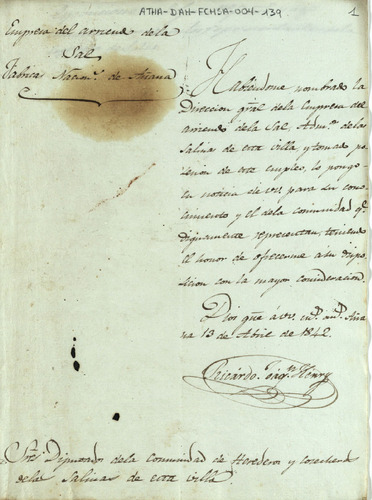 ATHA-DAH-FCHSA-004-139
1
Empresa del arriendo de la
Sal
Fabrica Nacion.l de Añana
Habiendome nombrado la
Direccion gral de la Empresa del
arriendo de la Sal, Adm.or de las
Salinas de esta villa, y tomado po
sesion de este empleo, lo pongo
en noticia de VS para su cono
cimiento y el dela comunidad q.e
dignamente representan, teniendo
el honor de ofrecerme a su dispo
sicion con la mayor consideracion.
Dios gue á VS. m.s an.s Aña
na 13 de Abril de 1842.
Ricardo Henry
Sres. Diputados dela Comunidad de Herederos y cosecheros
dela Salinas de esta villa.